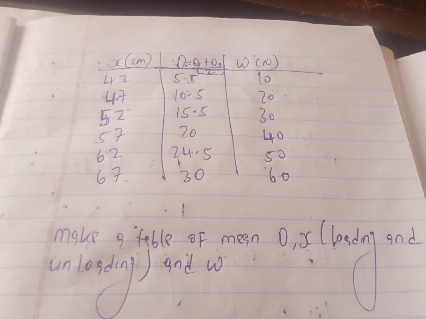 x(cm) D=D1+D2/2 W(N)
42 5.5 10
47 10.5 20
52 15.5 30
57 20 40
62 24.5 50
67 30 60
make a table of mean D, x (loading and
unloading) and w